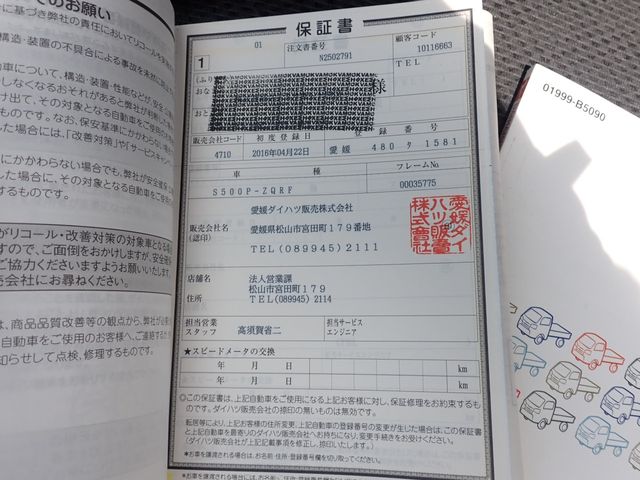 てのお願い
に基づき弊社の責任においてリコールを実施
構造・装置の不具合による事故を未然に防止
動車について、構造・装置・性能などが、安全
しなくなるおそれがあると弊社が判断した場
け出て、その対象となる自動車をご使用のお
す。なお、保安基準にかかわらない場合で
た場合には、「改善対策」や「サービスキャン
にかかわらない場合でも、弊社が安全確保
した場合に、その対象となる自動車をご使用
るものです。
がリコール・改善対策の対象車となる場
すので、ご面倒をおかけしますが、安全確
ご協力くださいますようお願いいたします。
売会社にお尋ねください。
は、商品品質改善等の観点から、弊社が必要
自動車をご使用のお客様へ、ご連絡するか
知らせして点検、修理するものです。
保証書
01
注文書番号
N2502791
顧客コード
10116663
1
TEL
様
販売会社コード
初度登録日
登録番号
4710
2016年04月22日
愛媛 480 タ 1581
車種
フレームNo
S500P-ZQRF
00035775
販売会社名
(認印)
愛媛ダイハツ販売株式会社
愛媛県松山市宮田町179番地
TEL(089945)2111
愛媛ダイ
ハツ販売
株式会社
店舗名
住所
法人営業課
松山市宮田町179
TEL(089945) 2114
担当営業
スタッフ
高須賀省二
担当サービス
エンジニア
★スピードメータの交換
年 月 日 km
年 月 日 km
◎この保証書は、上記自動車をご使用になる上記お客様に対し、保証修理をお約束するも
のです。ダイハツ販売会社の捺印の無いものは無効です。
転居等により、上記お客様の住所変更、上記自動車の登録番号の変更が生じた場合は、この保証書
と上記自動車を最寄りのダイハツ販売会社へお持ちになり、変更手続きをお受けください。
(ダイハツ販売会社が上記記載事項を修正し、捺印いたします。)
★お車を譲渡される場合は、お名前・住所・登録番号欄を切り取ってください。
01999-B5090